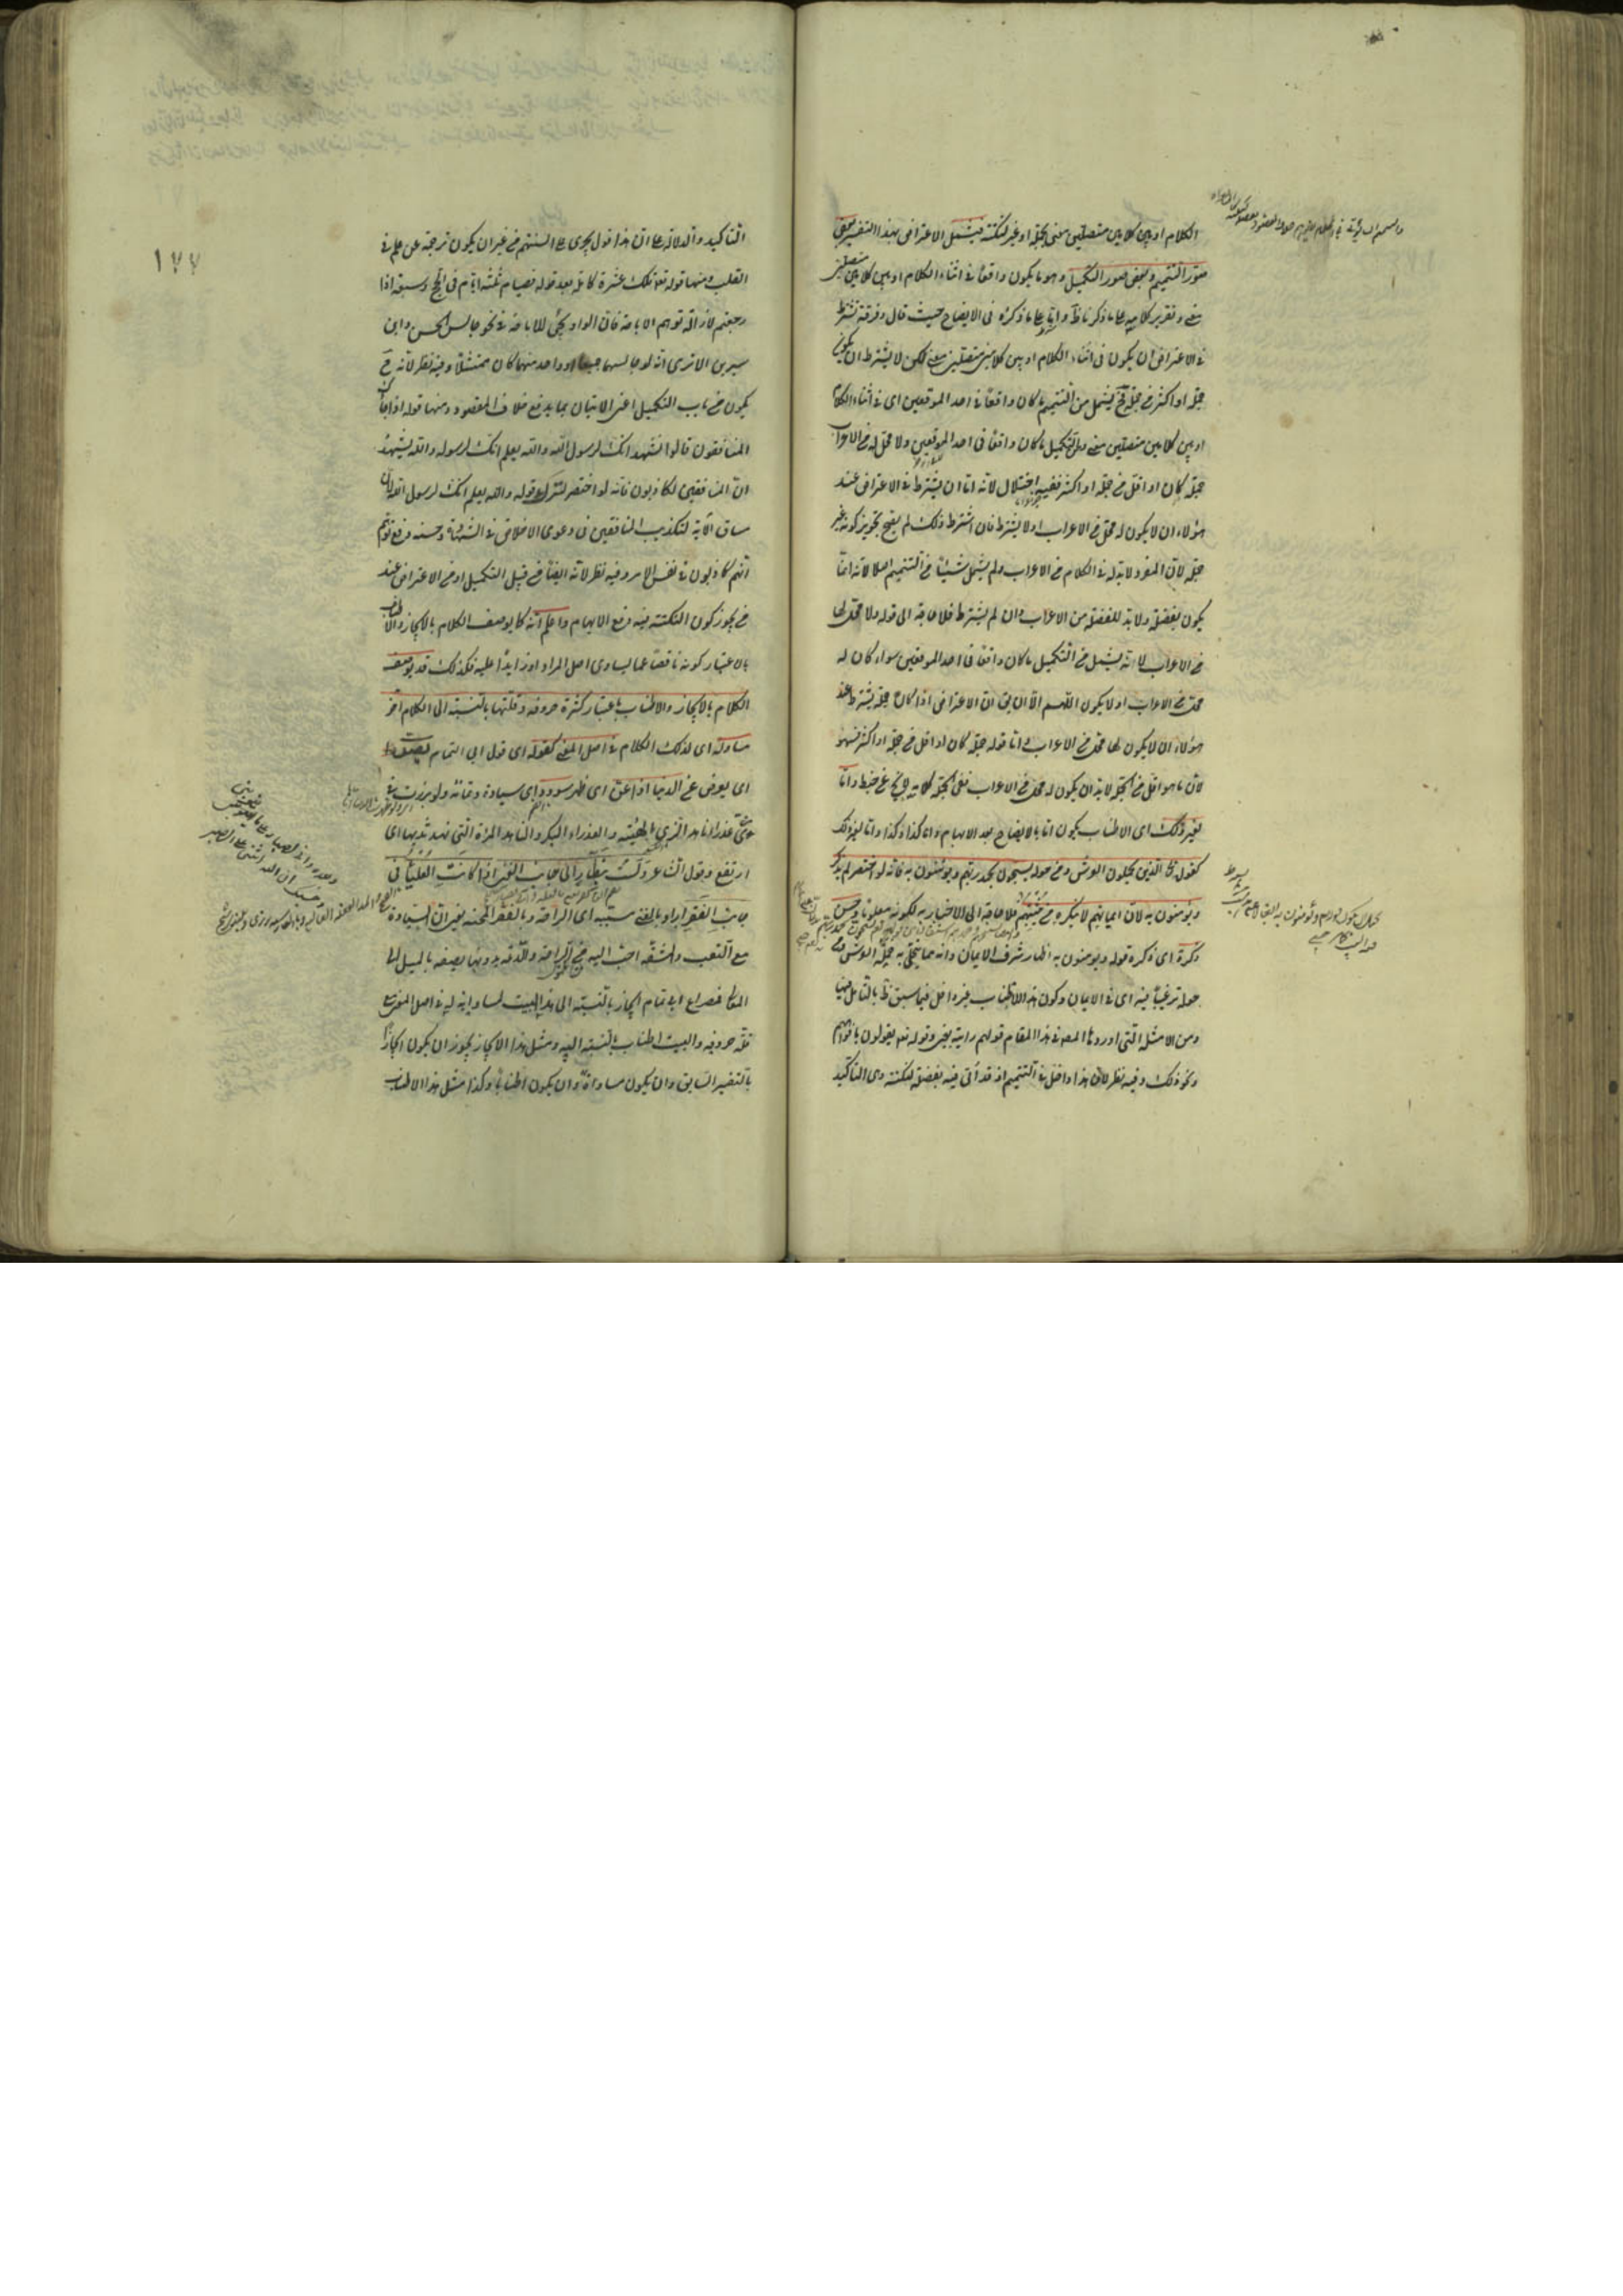 الكلام او بين كلامين متصلين معنى بجملة او غير لنكتة فيشمل الاعتراض بهذا التفسير بعض
صور التتميم وبعض صور التكميل وهو ما يكون واقعا فى اثناء الكلام او بين كلامين متصلين
معنى وتقرير كلامه على ما ذكرنا ظ واما على ما ذكره فى الايضاح حيث قال وفرقة تشترط
فى الاعتراض ان يكون فى اثناء الكلام او بين كلامين متصلين معنى لكن لا يشترط ان يكون
جملة او اكثر من جملة فح يشمل من التتميم ما كان واقعا فى احد الموقعين اى فى اثناء الكلام
او بين كلامين متصلين معنى ومن التكميل ما كان واقعا فى احد الموقعين ولا محل له من الاعراب
جملة كان او اقل من جملة او اكثر ففيه اختلال لانه اما ان يشترط فى الاعتراض عند
هؤلاء ان لا يكون له محل من الاعراب او لا يشترط فان اشترط ذلك لم يصح تجويز كونه غير
جملة لان المفرد لا بد له فى الكلام من الاعراب ولم يشمل شيئا من التتميم اصلا لانه انما
يكون بفضلة ولا بد للفضلة من الاعراب وان لم يشترط فلا حاجة الى قوله ولا محل لها
من الاعراب لانه يشمل من التكميل ما كان واقعا فى احد الموقعين سواء كان له
محل من الاعراب او لا يكون اللهم الا ان يق ان الاعتراض اذا كان جملة يشترط عند
هؤلاء ان لا يكون لها محل من الاعراب واما قوله جملة كان او اقل من جملة او اكثر فسهو
لان ما هو اقل من الجملة لا بد ان يكون له محل من الاعراب ففى الجملة كلامه لا يخ عن خبط واما
بغير ذلك اى الاطناب يكون اما بالايضاح بعد الابهام واما كذا وكذا واما بغير ذلك
كقوله تع الذين يحملون العرش ومن حوله يسبحون بحمد ربهم ويؤمنون به فانه لو اختصر لم يذكر
ويؤمنون به لان ايمانهم لا ينكره من يثبتهم فلا حاجة الى الاخبار به لكونه معلوما وحسن
ذكره اى ذكره قوله ويؤمنون به اظهار شرف الايمان وانه مما يتحلى به حملة العرش ومن
حوله ترغيبا فيه اى فى الايمان وكون هذا الاطناب بغير داخل فيما سبق ظ بالتامل فيها
ومن الامثلة التى اوردها المصـ فى هذا المقام قولهم رايته بعينى وقوله تعـ يقولون بافواههم
ونحو ذلك وفيه نظر لان هذا داخل فى التتميم اذ قد اتى فيه بفضلة لنكتة وهى التاكيد
١٧٧
التاكيد والدلالة على ان هذا قول يجرى على السنتهم من غير ان يكون ترجمة عن علم فى
القلب ومنها قوله تعـ تلك عشرة كاملة بعد قوله فصيام ثلثة ايام فى الحج وسبعة اذا
رجعتم لازالة توهم الاباحة فان الواو تجئ للاباحة فى نحو جالس الحسن وابن
سيرين الا ترى انه لو جالسهما جميعا او واحدا منهما كان ممتثلا وفيه نظر لانه ح
يكون من باب التكميل اعنى الاتيان بما يدفع خلاف المقصود ومنها قوله اذا جاءك
المنافقون قالوا نشهد انك لرسول الله والله يعلم انك لرسوله والله يشهد
ان المنافقين لكاذبون فانه لو اختصر لترك قوله والله يعلم انك لرسول الله لان
مساق الاية لتكذيب المنافقين فى دعوى الاخلاص فى الشهادة وحسنه دفع توهم
انهم كاذبون فى نفس الامر وفيه نظر لانه ايضا من قبيل التكميل او من الاعتراض عند
من يجوز كون النكتة فيه دفع الايهام واعلم انه كما يوصف الكلام بالايجاز والاطناب
باعتبار كونه ناقصا عما يساوى اصل المراد او زايدا عليه فكذلك قد يوصف
الكلام بالايجاز والاطناب باعتبار كثرة حروفه وقلتها بالنسبة الى الكلام اخر
مساو له اى لذلك الكلام فى اصل المعنى كقوله اى قول ابى التمام يصد
اى يعرض عن الدنيا اذا عن اى ظهر سودد اى سيادة وتمامه ولو برزت فى
زى عذراء ناهد الزى الهيئة والعذراء البكر والناهد المراة التى نهد ثديها اى
ارتفع وقول الشاعر ولست بنظار الى جانب الغنى اذا كانت العلياء فى
جانب الفقر اراد بالغنى سببه اى الراحة وبالفقر المحنة يعنى ان السيادة
مع التعب والمشقة احب اليه من الراحة والدعة بدونها يصفه بالميل الى
المعالى فمصراع ابى تمام ايجاز بالنسبة الى هذا البيت لمساواته له فى اصل المعنى مع
قلة حروفه والبيت اطناب بالنسبة اليه ومثل هذا الايجاز يجوز ان يكون ايجازا
بالتفسير السابق وان يكون مساواة وان يكون اطنابا وكذا مثل هذا الاطناب